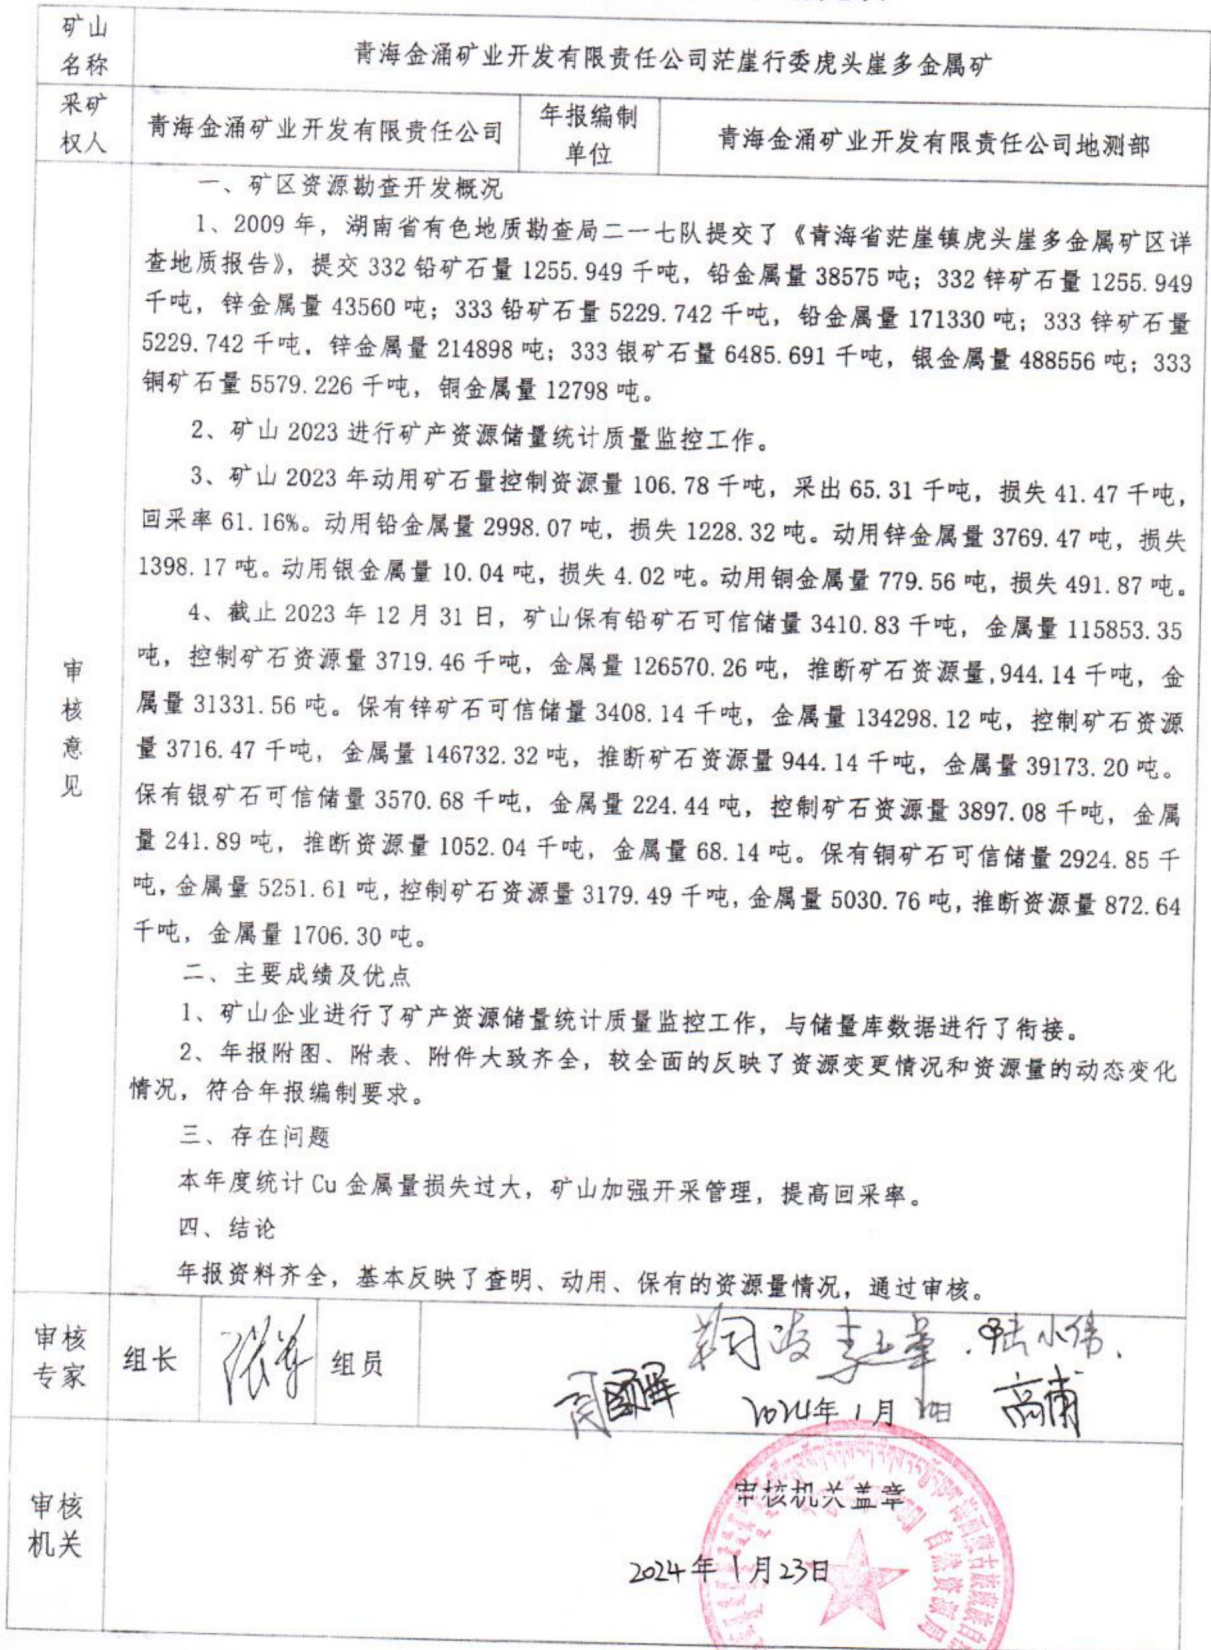 矿山
名称
青海金涌矿业开发有限责任公司茫崖行委虎头崖多金属矿
采矿
权人
青海金涌矿业开发有限责任公司
年报编制
单位
青海金涌矿业开发有限责任公司地测部
审
核
意
见
一、矿区资源勘查开发概况
1、2009 年，湖南省有色地质勘查局二一七队提交了《青海省茫崖镇虎头崖多金属矿区详
查地质报告》，提交 332 铅矿石量 1255.949 千吨，铅金属量 38575 吨；332 锌矿石量 1255.949
千吨，锌金属量 43560 吨；333 铅矿石量 5229.742 千吨，铅金属量 171330 吨；333 锌矿石量
5229.742 千吨，锌金属量 214898 吨；333 银矿石量 6485.691 千吨，银金属量 488556 吨；333
铜矿石量 5579.226 千吨，铜金属量 12798 吨。
2、矿山 2023 进行矿产资源储量统计质量监控工作。
3、矿山 2023 年动用矿石量控制资源量 106.78 千吨，采出 65.31 千吨，损失 41.47 千吨，
回采率 61.16%。动用铅金属量 2998.07 吨，损失 1228.32 吨。动用锌金属量 3769.47 吨，损失
1398.17 吨。动用银金属量 10.04 吨，损失 4.02 吨。动用铜金属量 779.56 吨，损失 491.87 吨。
4、截止 2023 年 12 月 31 日，矿山保有铅矿石可信储量 3410.83 千吨，金属量 115853.35
吨，控制矿石资源量 3719.46 千吨，金属量 126570.26 吨，推断矿石资源量,944.14 千吨，金
属量 31331.56 吨。保有锌矿石可信储量 3408.14 千吨，金属量 134298.12 吨，控制矿石资源
量 3716.47 千吨，金属量 146732.32 吨，推断矿石资源量 944.14 千吨，金属量 39173.20 吨。
保有银矿石可信储量 3570.68 千吨，金属量 224.44 吨，控制矿石资源量 3897.08 千吨，金属
量 241.89 吨，推断资源量 1052.04 千吨，金属量 68.14 吨。保有铜矿石可信储量 2924.85 千
吨，金属量 5251.61 吨，控制矿石资源量 3179.49 千吨，金属量 5030.76 吨，推断资源量 872.64
千吨，金属量 1706.30 吨。
二、主要成绩及优点
1、矿山企业进行了矿产资源储量统计质量监控工作，与储量库数据进行了衔接。
2、年报附图、附表、附件大致齐全，较全面的反映了资源变更情况和资源量的动态变化
情况，符合年报编制要求。
三、存在问题
本年度统计 Cu 金属量损失过大，矿山加强开采管理，提高回采率。
四、结论
年报资料齐全，基本反映了查明、动用、保有的资源量情况，通过审核。
审核
专家
组长
组员
陆小伟
2024年1月 日
高甫
审核
机关
审核机关盖章
2024年1月23日
自然资源局